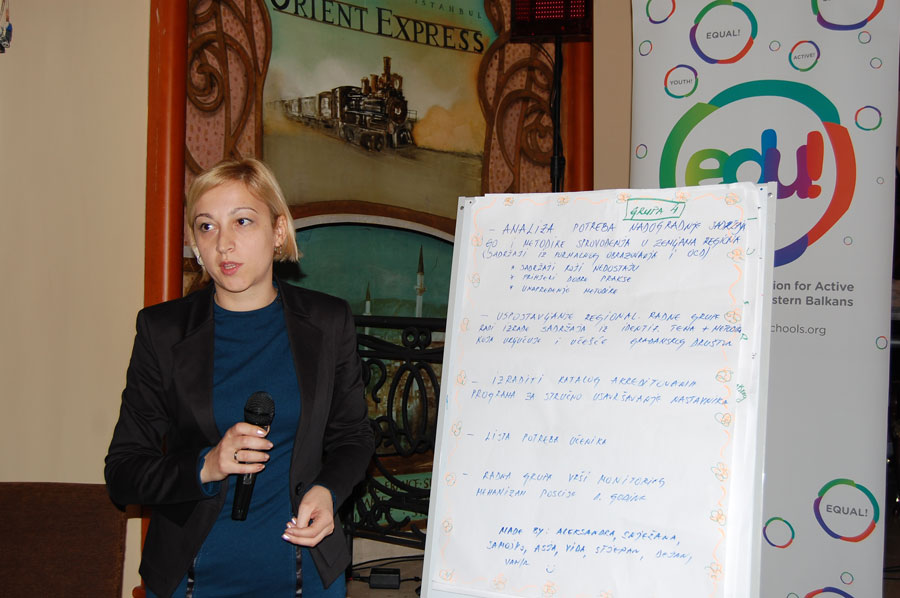 ISTANBUL
ORIENT EXPRESS
EQUAL!
ACTIVE!
YOUTH!
edu!
tion for Active
estern Balkans
schools.org
EQUAL!
GRUPA 4
- ANALIZA POTREBA NADOGRADNJE SADRŽA
I METODIKE SPROVOĐENJA U ZEMLJAMA REGIONA
(SADRŽAJI IZ FORMALNOG OBRAZOVANJA I OCD)
* SADRŽAJI KOJI NEDOSTAJU
* PRIMJERI DOBRE PRAKSE
* UNAPREĐENJE METODIKE
- USPOSTAVLJANJE REGIONAL. RADNE GRUPE
RADI IZRADE SADRŽAJA IZ IDENTIF. TEMA + METODA
KOJA UKLJUČUJE I UČEŠĆE GRAĐANSKOG DRUŠTVA
- IZRADITI KATALOG AKREDITOVANIH
PROGRAMA ZA STRUČNO USAVRŠAVANJE NASTAVNIKA
- LISTA POTREBA UČENIKA
- RADNA GRUPA VRŠI MONITORING
MEHANIZAM POSLIJE 2. GODINE
MADE BY: ALEKSANDRA, SNJEŽANA,
ASJA, VIDA, STJEPAN, DEJAN,
VANJA